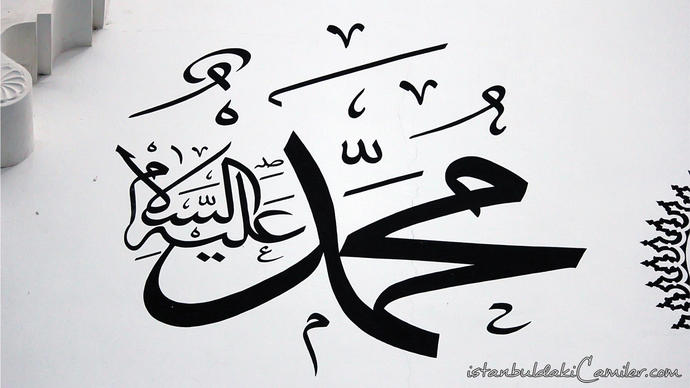 محمد
عليه السلام
istanbuldakiCamiler.com